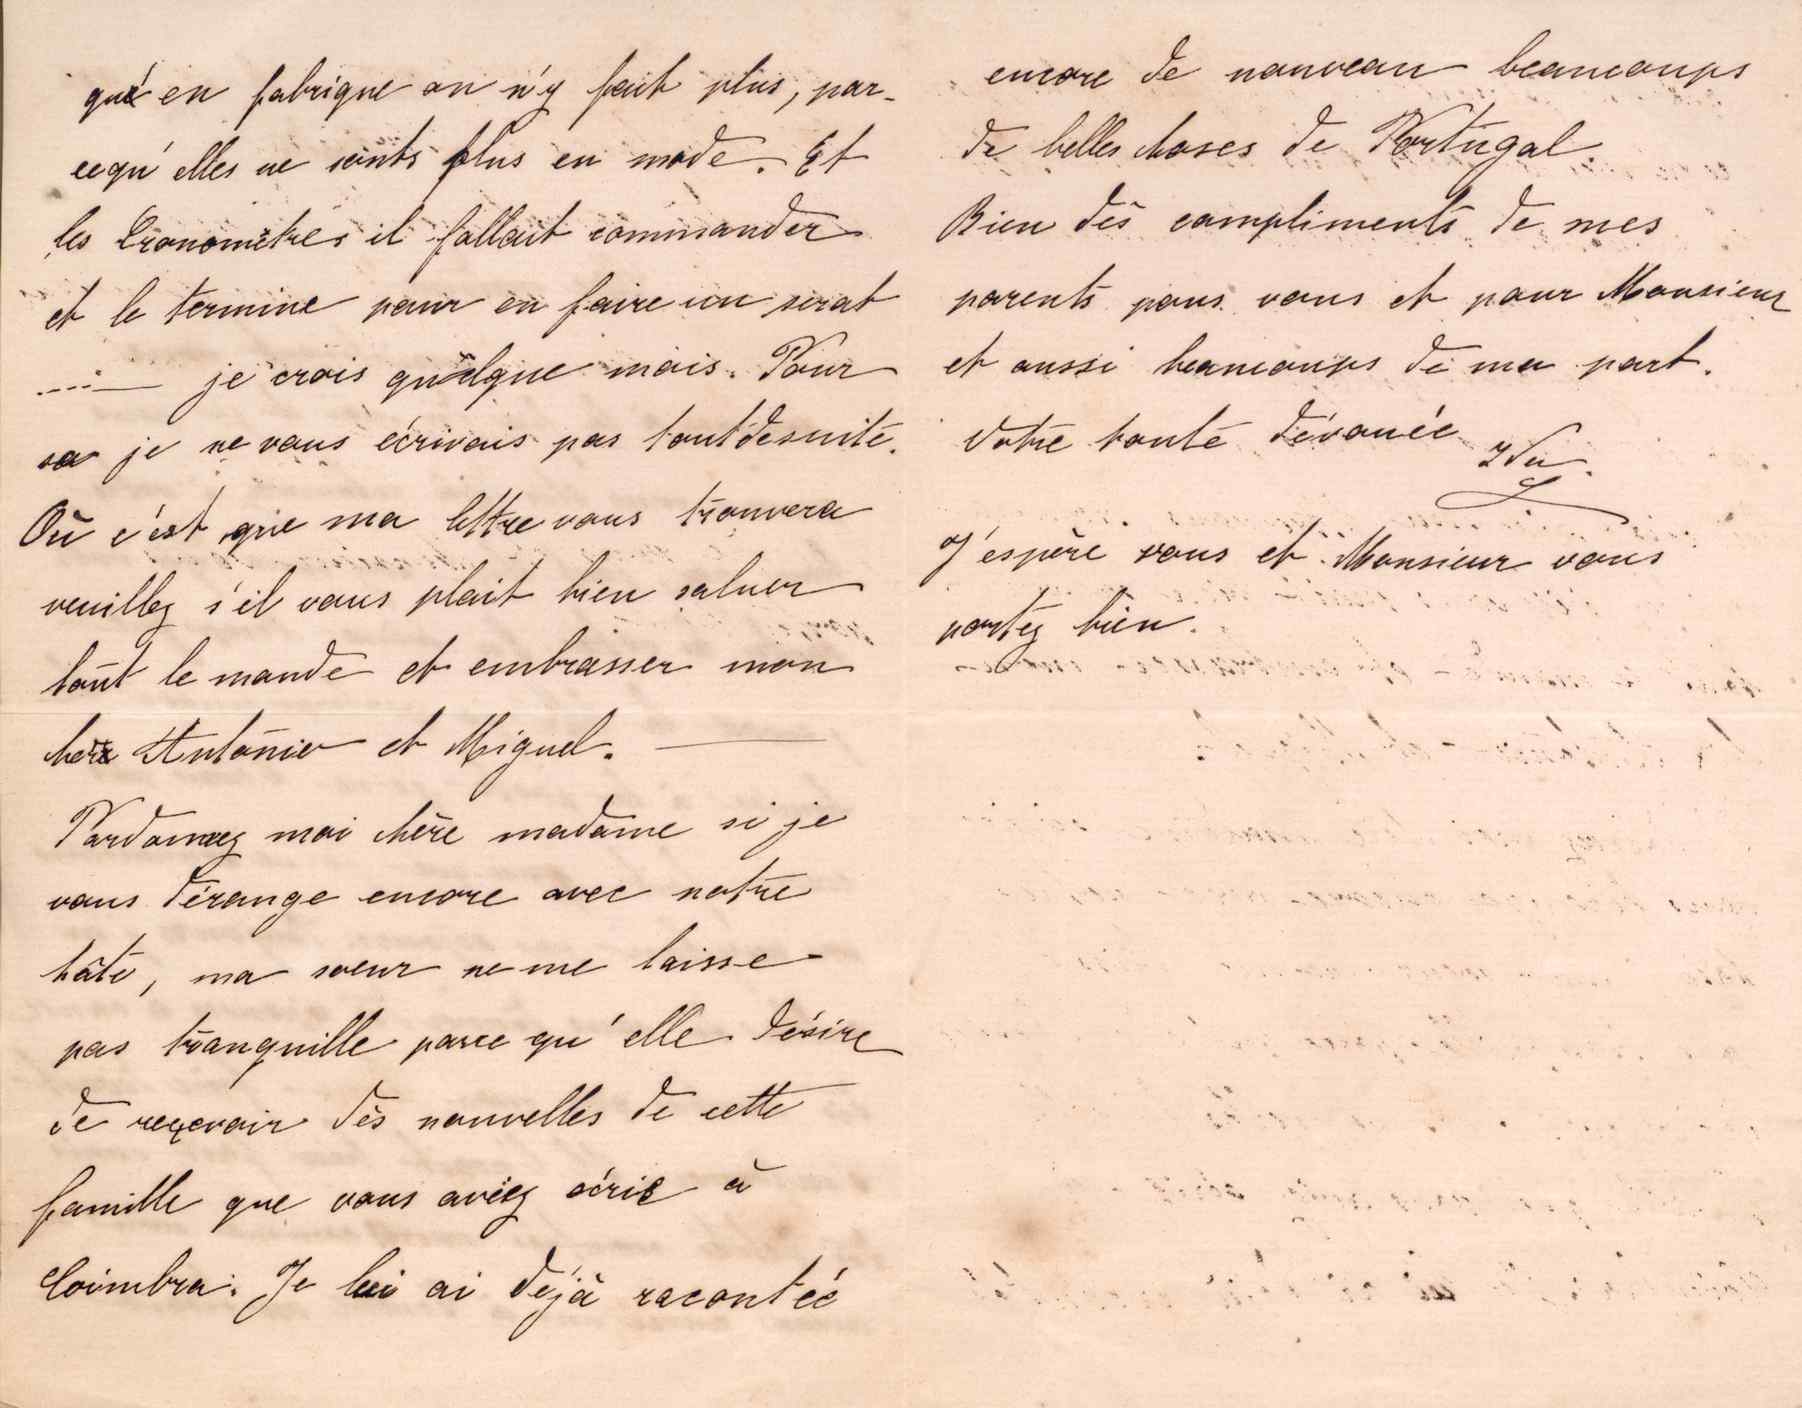 qué en fabrique on n'y feut plus, par-
cequ'elles ne sonts plus en mode. Et
les Cronometres il fallait commander
et le termine pour en faire un serat
je crois quelque mois. Pour
sa je ne vous écrivais pas toutdesuite.
Où c'est que ma lettre vous trouvera
veuillez s'il vous plait bien saluer
tout le monde et embrasser mon
cher Antonio et Miguel.
Pardonnez moi chère madame si je
vous dérange encore avec notre
hâte, ma soeur ne me laisse
pas tranquille parce qu'elle désire
de reçevoir des nouvelles de cette
famille que vous aviez écrie à
Coimbra. Je lui ai déjà racontée
encore de nouveau beaucoups
de belles choses de Portugal
Bien dès compliments de mes
parents pous vous et pour Monsieur
et aussi beaucoups de ma part.
Votre toute dévouée
Ida.
J'espère vous et Monsieur vous
portez bien.